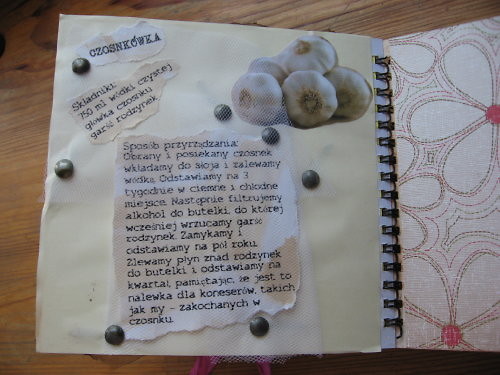 CZOSNKÓWKA
Składniki:
750 ml wódki czystej
główka czosnku
garść rodzynek
Sposób przyrządzania:
Obrany i posiekany czosnek
wkładamy do słoja i zalewamy
wódką. Odstawiamy na 3
tygodnie w ciemne i chłodne
miejsce. Następnie filtrujemy
alkohol do butelki, do której
wcześniej wrzucamy garść
rodzynek. Zamykamy i
odstawiamy na pół roku.
Zlewamy płyn znad rodzynek
do butelki i odstawiamy na
kwartał, pamiętając, że jest to
nalewka dla koneserów, takich
jak my – zakochanych w
czosnku.